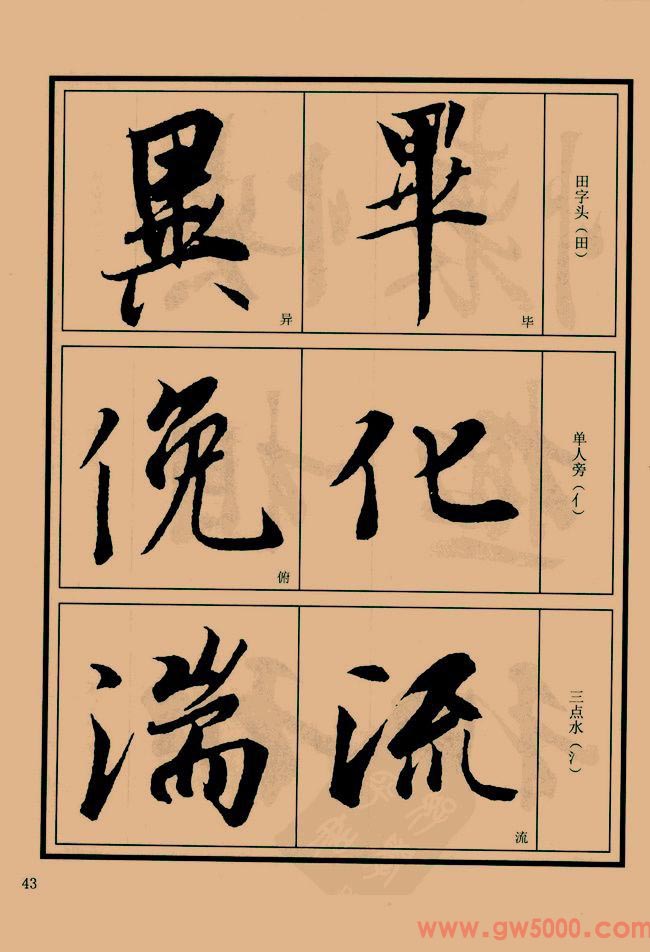 田字头（田）
畢
毕
異
异
单人旁（亻）
化
俛
俯
三点水（氵）
流
流
湍
43
www.gw5000.com